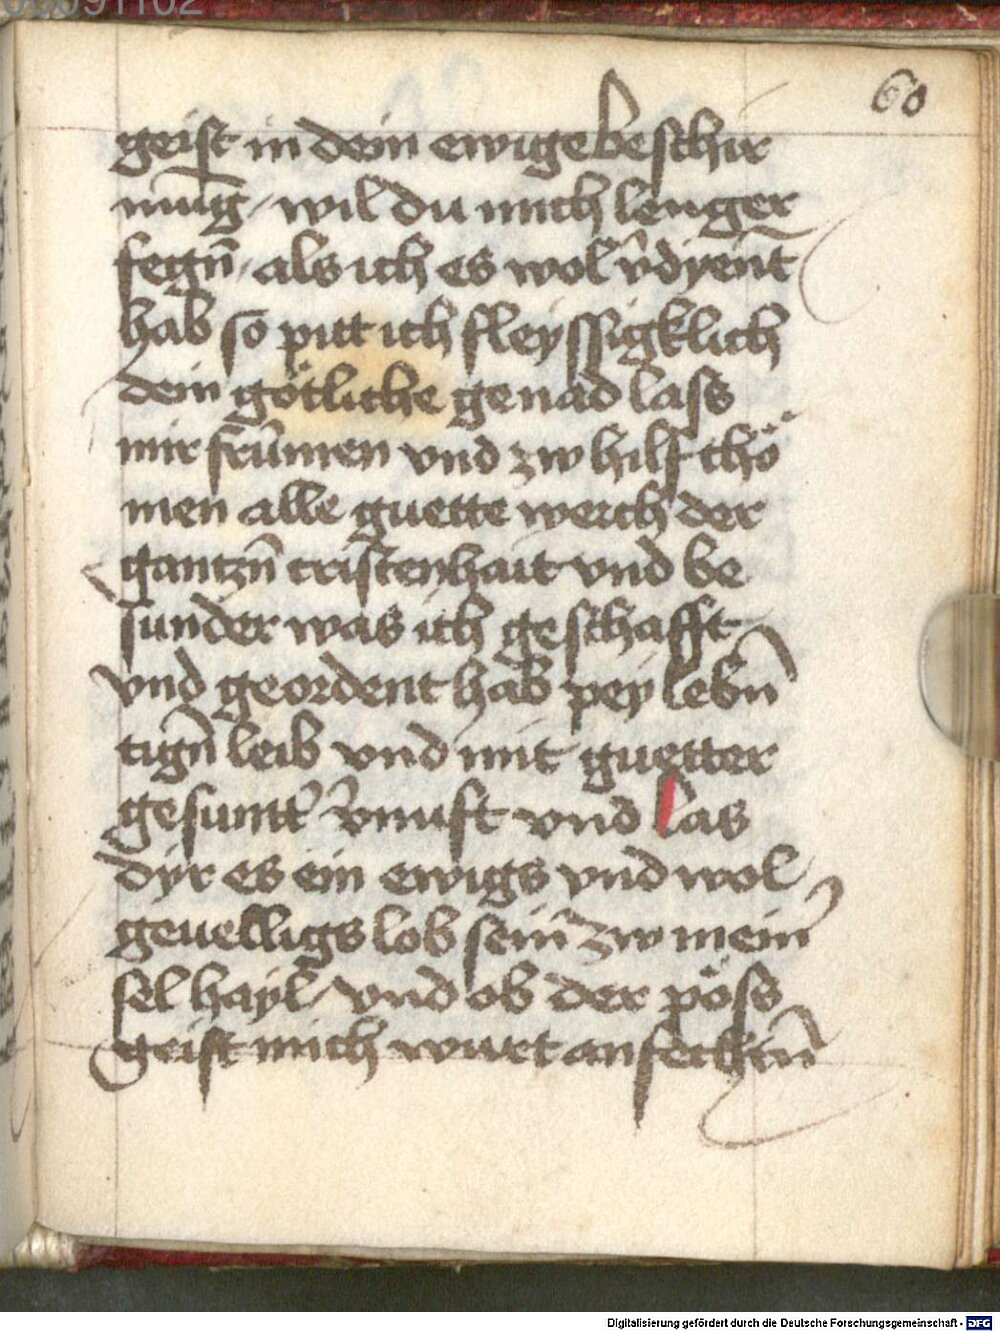 60
geist in dein ewige beschir
mūg / wil du mich lenger
fegn̄ / als ich es wol v̄dyent
hab so pitt ich fleyssigklich
dein götliche genad lass
mir frūmen vnd zw hilf chö
men alle guette werch der
gantzn̄ cristenhait vnd be
sunder was ich geschafft
vnd geordent hab pey lebn̄
tign̄ leib vnd mit guetter
gesuntt' v̄nuft vnd las
dyr es ein ewigs vnd wol
geuelligs lob sein zw mein'
sel hayl vnd ob der pöss
geist mich wurt anfecktn̄
Digitalisierung gefördert durch die Deutsche Forschungsgemeinschaft - DFG